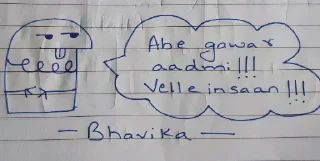 Abe gawar
aadmi!!!
Velle insaan!!!
— Bhavika —